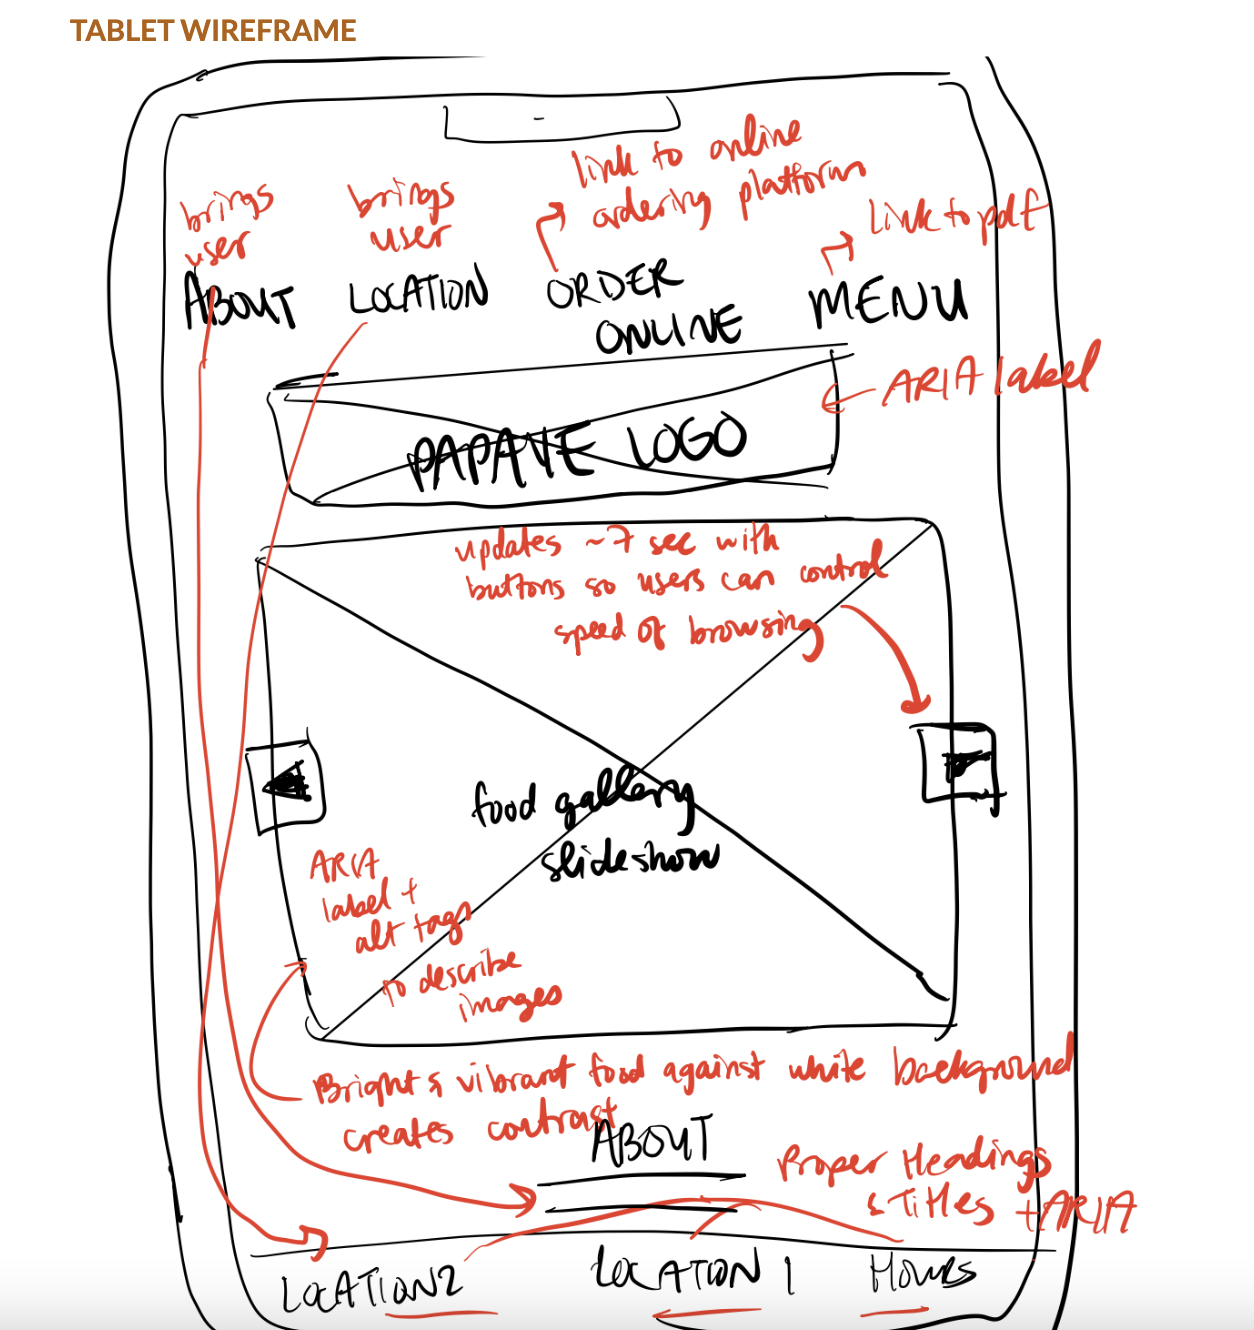 TABLET WIREFRAME
link to online
ordering platform
brings
user
brings
user
Link to pdf
ABOUT
LOCATION
ORDER
ONLINE
MENU
ARIA label
PAPAVE LOGO
updates ~7 sec with
buttons so users can control
speed of browsing
food gallery
slideshow
ARIA
label +
alt tags
to describe
images
Bright & vibrant food against white background
creates contrast
ABOUT
Proper Headings
& Titles + ARIA
LOCATION 2
LOCATION 1
HOURS